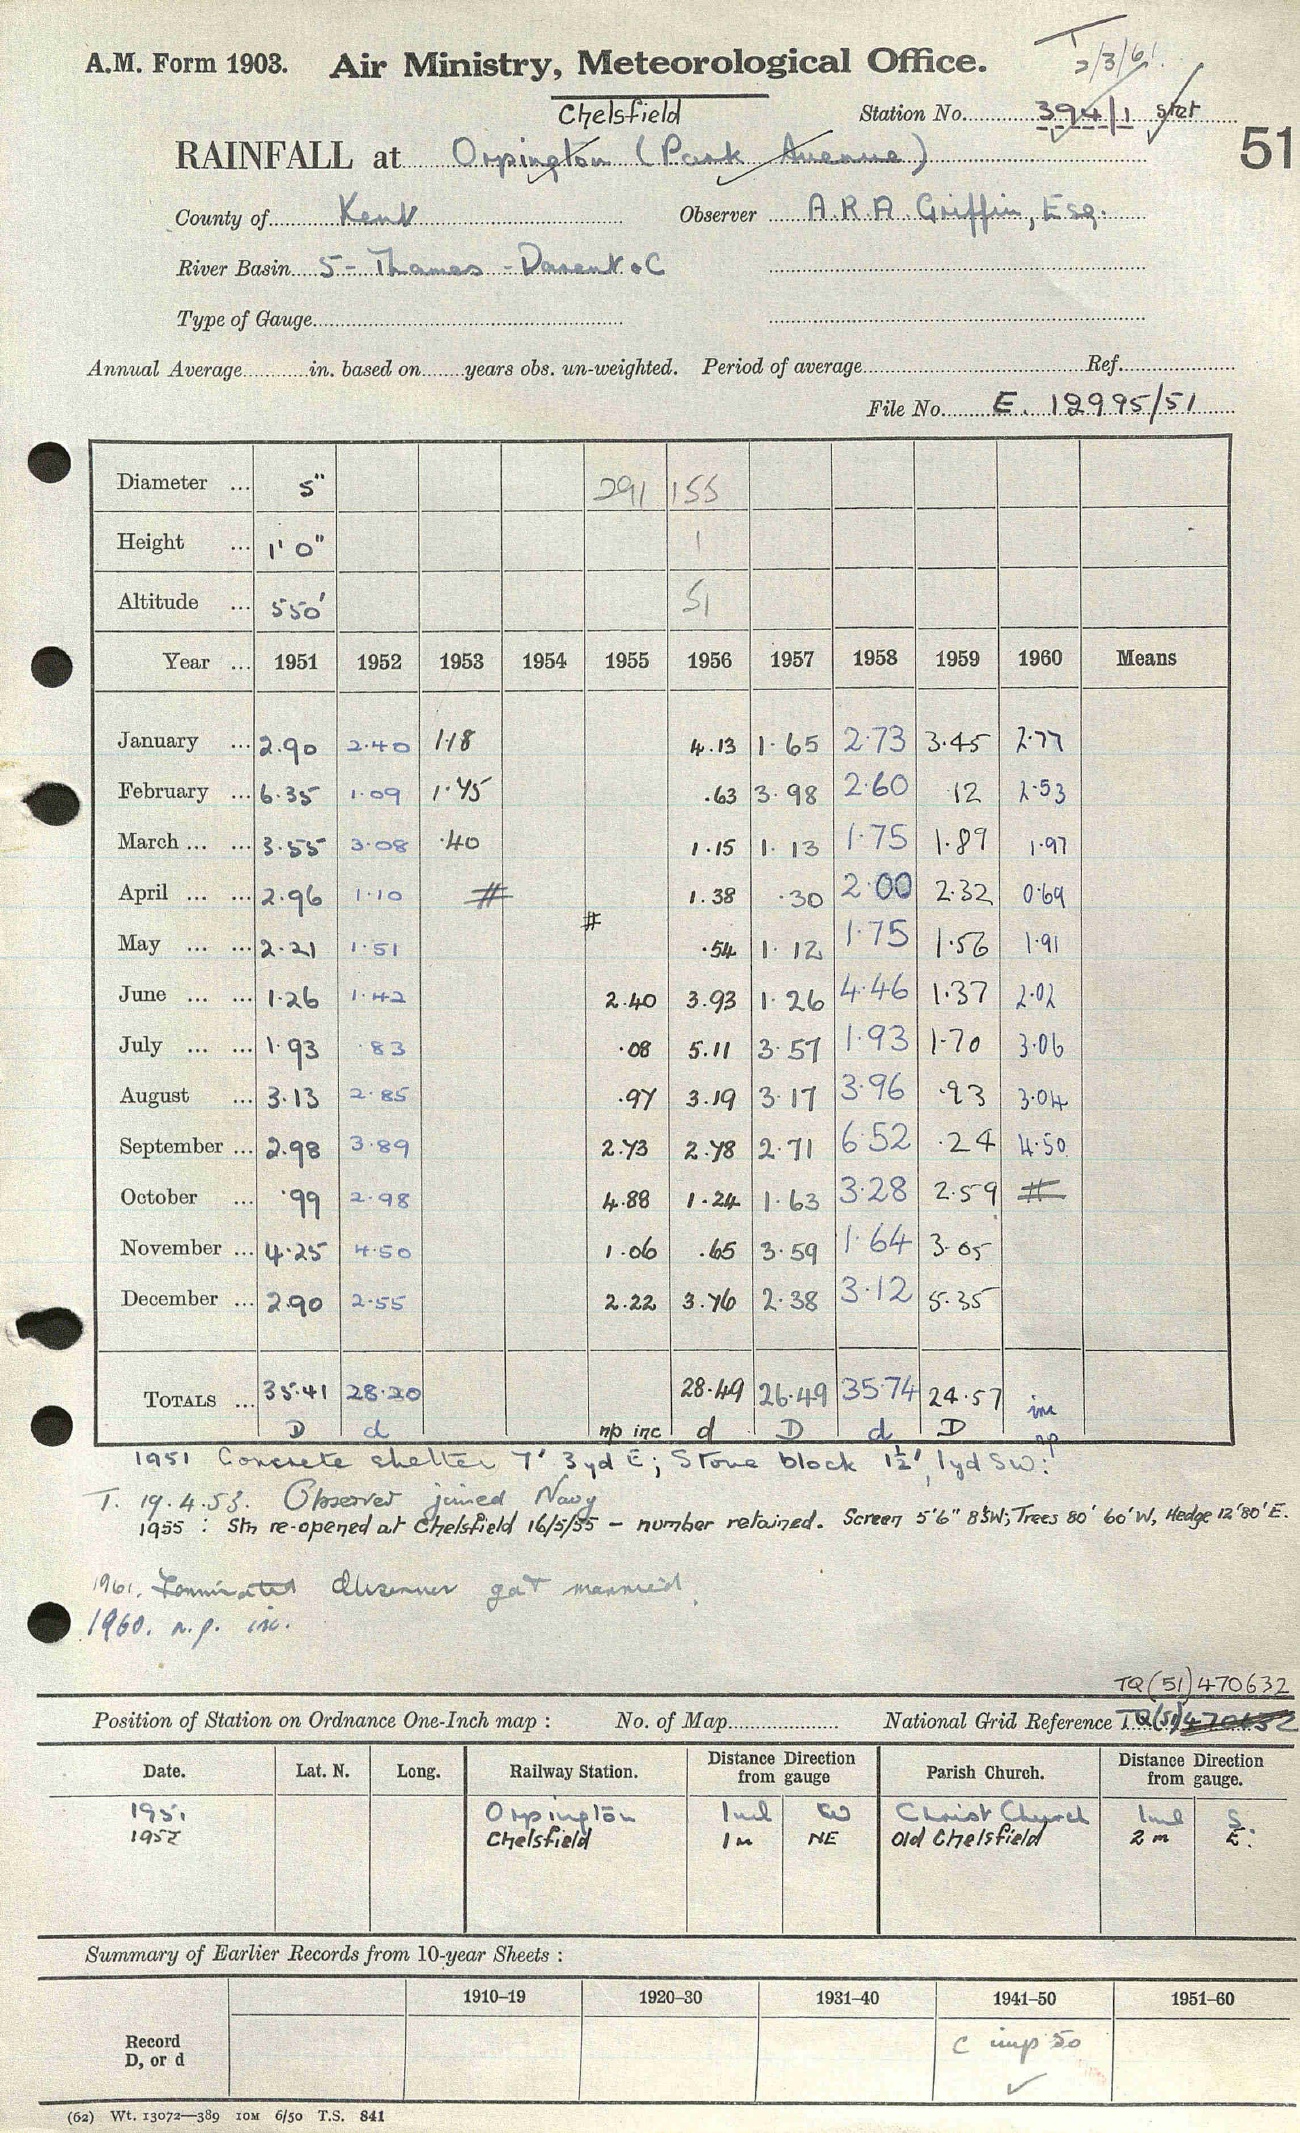 A.M. Form 1903. Air Ministry, Meteorological Office.
2/3/61.
Chelsfield
Station No. 394/1 stet
51
RAINFALL at Orpington (Park Avenue)
County of Kent Observer A.R.A. Griffin, Esq.
River Basin 5 - Thames - Darent &C
Type of Gauge
Annual Average in. based on years obs. un-weighted. Period of average Ref.
File No. E. 12995/51
Diameter ... 5" 291 155
Height ... 1' 0" 1
Altitude ... 550' 51
Year ... 1951 1952 1953 1954 1955 1956 1957 1958 1959 1960 Means
January ... 2.90 2.40 1.18 4.13 1.65 2.73 3.45 2.77
February ... 6.35 1.09 1.45 .63 3.98 2.60 12 2.53
March ... ... 3.55 3.08 .40 1.15 1.13 1.75 1.89 1.97
April ... ... 2.96 1.10 # 1.38 .30 2.00 2.32 0.69
#
May ... ... 2.21 1.51 .54 1.12 1.75 1.56 1.91
June ... ... 1.26 1.42 2.40 3.93 1.26 4.46 1.37 2.02
July ... ... 1.93 .83 .08 5.11 3.57 1.93 1.70 3.06
August ... 3.13 2.85 .97 3.19 3.17 3.96 .93 3.04
September ... 2.98 3.89 2.73 2.78 2.71 6.52 .24 4.50
October ... .99 2.98 4.88 1.24 1.63 3.28 2.59 #
November ... 4.25 4.50 1.06 .65 3.59 1.64 3.05
December ... 2.90 2.55 2.22 3.76 2.38 3.12 5.35
TOTALS ... 35.41 28.20 28.49 26.49 35.74 24.57 inc
D d np inc d D d D np
1951 Concrete shelter 7' 3yd E; Stone block 1½', 1yd SW:
T. 19.4.53. Observer joined Navy
1955 : Stn re-opened at Chelsfield 16/5/55 - number retained. Screen 5'6" 8'SW; Trees 80' 60'W, Hedge 12' 80' E.
1961. Terminated Observer got married.
1960. n.p. inc.
TQ(51)470632
Position of Station on Ordnance One-Inch map : No. of Map National Grid Reference TQ(51)470632
Date. Lat. N. Long. Railway Station. Distance from gauge Direction Parish Church. Distance from gauge. Direction
1951 Orpington 1ml W Christ Church 1ml S.
1955 Chelsfield 1m NE Old Chelsfield 2m E.
Summary of Earlier Records from 10-year Sheets :
1910-19 1920-30 1931-40 1941-50 1951-60
Record D, or d C imp 50
(62) Wt. 13072—389 10M 6/50 T.S. 841